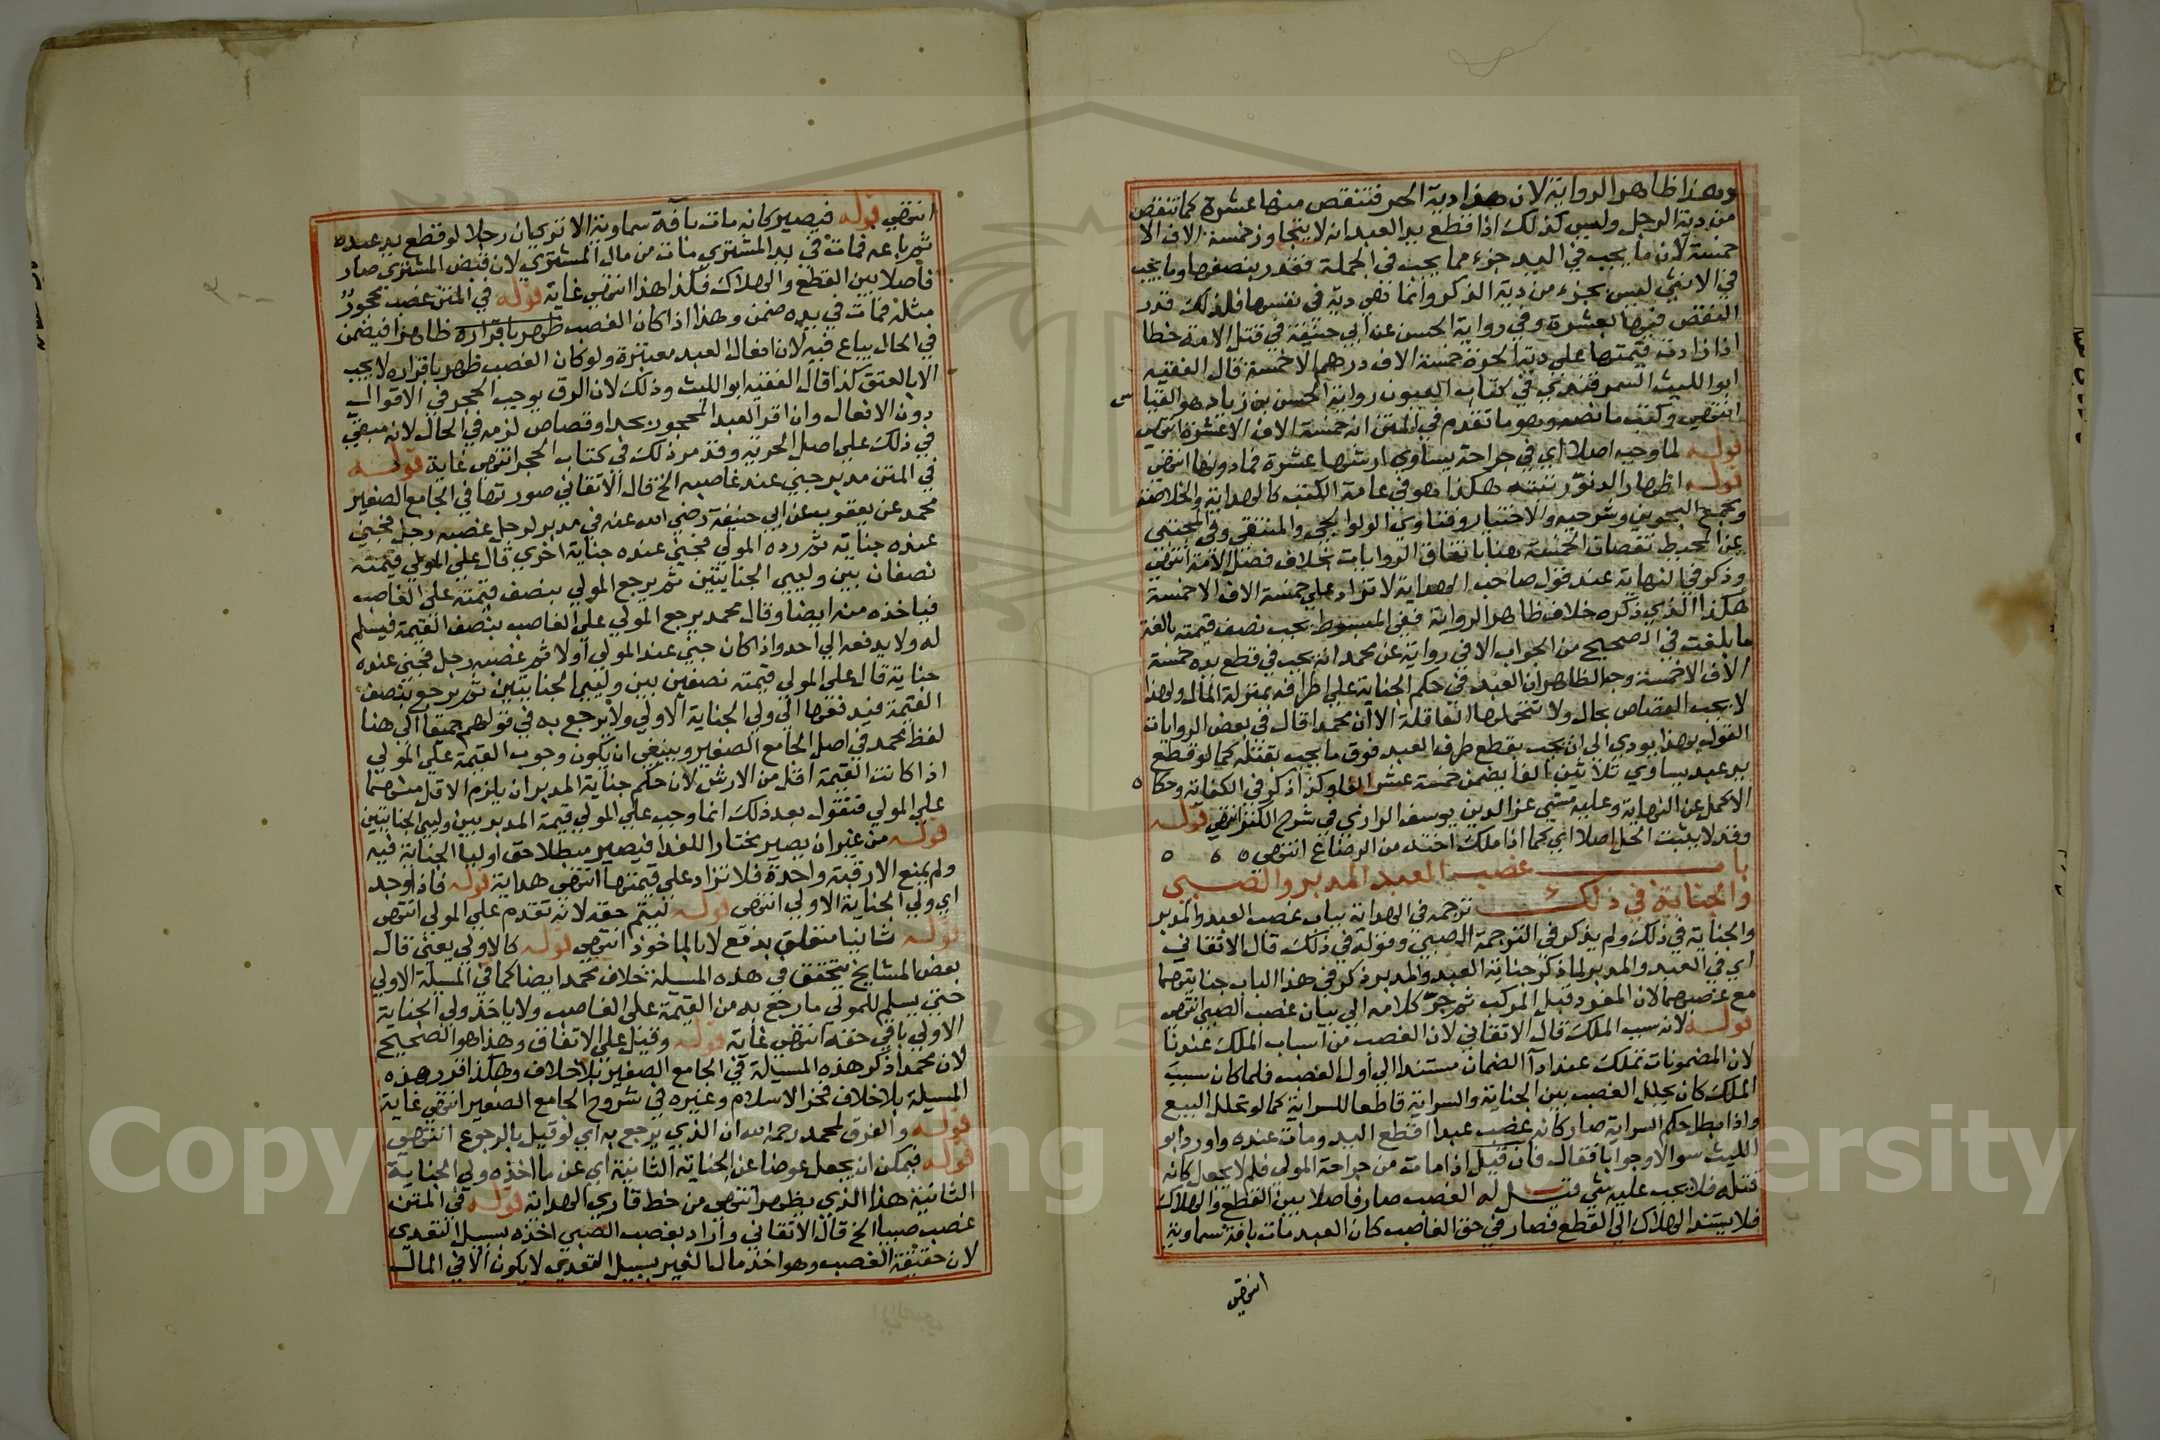 وهذا ظاهر الرواية لان هذا دية الحر فتنقص منها عشرة كما تنقص
من دية الرجل وليس كذلك اذا قطع يد العبد انه لا يتجاوز خمسة الاف الا
خمسة لان ما يجب في اليد جزء مما يجب في الجملة فقدر بنصفها وما يجب
في الانثى ليس بجزء من دية الذكر وانما نهي دية في نفسها فلذلك قدر
النقص فيها بعشرة وفي رواية الحسن عن ابي حنيفة في قتل الامة خطا
اذا زادت قيمتها على دية الحرة خمسة الاف درهم الا خمسة قال الفقيه
ابو الليث السمرقندي في كتاب العيون رواية الحسن بن زياد هو القياس
انتهى وكتب ما نصه وهو ما تقدم في المتن انه خمسة الاف الا عشرة انتهى
قوله لما وجب اصلا اي في جراحة يساوي ارشها عشرة فما دونها انتهى
قوله اظهارا لدنو رتبته هكذا هو في عامة الكتب كالهداية والخلاصة
ومجمع البحرين وشرحيه والاختيار وفتاوى الولوالجي والمنتقى وفي المجتبى
عن المحيط نقصان الخمسة هنا باتفاق الروايات بخلاف فصل الامة انتهى
وذكر في النهاية عند قول صاحب الهداية لا تزاد على خمسة الاف الا خمسة
هكذا الذي ذكره خلاف ظاهر الرواية ففي المبسوط يجب نصف قيمته بالغة
ما بلغت في الصحيح من الجواب الا في رواية عن محمد انه يجب في قطع يده خمسة
الاف الا خمسة وجه الظاهر ان العبد في حكم الجناية على اطرافه بمنزلة المال ولهذا
لا يجب القصاص بحال ولا تتحملها العاقلة الا ان محمدا قال في بعض الروايات
القول بهذا يودي الى ان يجب بقطع طرف العبد فوق ما يجب بقتله كما لو قطع
يد عبد يساوي ثلاثين الفا يضمن خمسة عشر الفا وكذا ذكر في الكفاية وحكاه
الاكمل عن النهاية وعليه مشى عز الدين يوسف الرازي في شرح الكنز انتهى قوله
وقد لا يثبت الحل اصلا اي كما اذا ملك اخته من الرضاع انتهى ه ه ه
باب غصب العبد المدبر والصبي
والجناية في ذلك ترجمه في الهداية بباب غصب العبد والمدبر
والجناية في ذلك ولم يذكر في الترجمة الصبي وقوله في ذلك قال الاتقاني
اي في العبد والمدبر لما ذكر جناية العبد والمدبر ذكر في هذا الباب جنايتهما
مع غصبهما لان المفرد قبل المركب ثم جر كلامه الى بيان غصب الصبي انتهى
قوله لانه سبب الملك قال الاتقاني لان الغصب من اسباب الملك عندنا
لان المضمونات تملك عند اداء الضمان مستندا الى اول الغصب فلما كان سبب
الملك كان تخلل الغصب بين الجناية والسراية قاطعا للسراية كما لو تخلل البيع
واذا بطل حكم السراية صار كانه غصب عبدا اقطع اليد ومات عنده واورد ابو
الليث سوالا وجوابا فقال فان قيل اذا مات من جراحة المولى فلم لا يجعل كانه
قتله فلا يجب عليه شي قيل له الغصب صار فاصلا بين القطع والهلاك
فلا يستند الهلاك الى القطع فصار في حق الغاصب كان العبد مات بافة سماوية
انتهى
انتهى قوله فيصير كانه مات بآفة سماوية الا ترى ان رجلا لو قطع يد عبده
ثم باعه فمات في يد المشتري مات من مال المشتري لان قبض المشتري صار
فاصلا بين القطع والهلاك فكذا هذا انتهى غاية قوله في المتن غصب محجور
مثله فمات في يده ضمن وهذا اذا كان الغصب ظهر باقراره ظاهرا فيضمن
في الحال يباع فيه لان افعال العبد معتبرة ولو كان الغصب ظهر باقراره لا يجب
الا بالعتق كذا قال الفقيه ابو الليث وذلك لان الرق يوجب الحجر في الاقوال
دون الافعال وان اقر العبد المحجور بحد او قصاص لزمه في الحال لانه مبقى
في ذلك على اصل الحرية وقد مر ذلك في كتاب الحجر انتهى غاية قوله
في المتن مدبر جنى عند غاصبه الخ قال الاتقاني صورتها في الجامع الصغير
محمد عن يعقوب عن ابي حنيفة رضي الله عنه في مدبر لرجل غصبه رجل فجنى
عنده جناية ثم رده المولى فجنى عنده جناية اخرى قال على المولى قيمته
نصفان بين وليي الجنايتين ثم يرجع المولى بنصف قيمته على الغاصب
فياخذه منه ايضا وقال محمد يرجع المولى على الغاصب بنصف القيمة فيسلم
له ولا يدفعه الى احد واذا كان جنى عند المولى اولا ثم غصبه رجل فجنى عنده
جناية قال على المولى قيمته نصفين بين وليي الجنايتين ثم يرجع بنصف
القيمة فيدفعها الى ولي الجناية الاولى ولا يرجع به في قولهم جميعا الى هنا
لفظ محمد في اصل الجامع الصغير وينبغي ان يكون وجوب القيمة على المولى
اذا كانت القيمة اقل من الارش لان حكم جناية المدبر ان يلزم الاقل منهما
على المولى فنقول بعد ذلك انما وجب على المولى قيمة المدبر بين وليي الجنايتين
قوله من غير ان يصير مختارا للفدا فيصير مبطلا حق اوليا الجناية فيه
ولم يمنع الا رقبة واحدة فلا تزاد على قيمتها انتهى هداية قوله فاذا وجد
اي ولي الجناية الاولى انتهى قوله ليتم حقه لانه تقدم على المولى انتهى
قوله ثانيا متعلق بدفع لا بالماخوذ انتهى قوله كالاولى يعني قال
بعض المشايخ يتحقق في هذه المسلة خلاف محمد ايضا كما في المسلة الاولى
حتى يسلم للمولى ما رجع به من القيمة على الغاصب ولا ياخذ ولي الجناية
الاولى باقي حقه انتهى غاية قوله وقيل على الاتفاق وهذا هو الصحيح
لان محمدا ذكر هذه المسيلة في الجامع الصغير بلا خلاف وهكذا قرر هذه
المسيلة بلا خلاف فخر الاسلام وغيره في شروح الجامع الصغير انتهى غاية
قوله والفرق لمحمد رحمه الله ان الذي يرجع به اي لو قيل بالرجوع انتهى
قوله فيمكن ان يجعل عوضا عن الجناية الثانية اي عن ما اخذه ولي الجناية
الثانية هذا الذي يظهر انتهى من خط قاري الهداية قوله في المتن
غصب صبيا الخ قال الاتقاني واراد بغصب الصبي اخذه بسبيل التعدي
لان حقيقة الغصب وهو اخذ مال الغير بسبيل التعدي لا يكون الا في المال